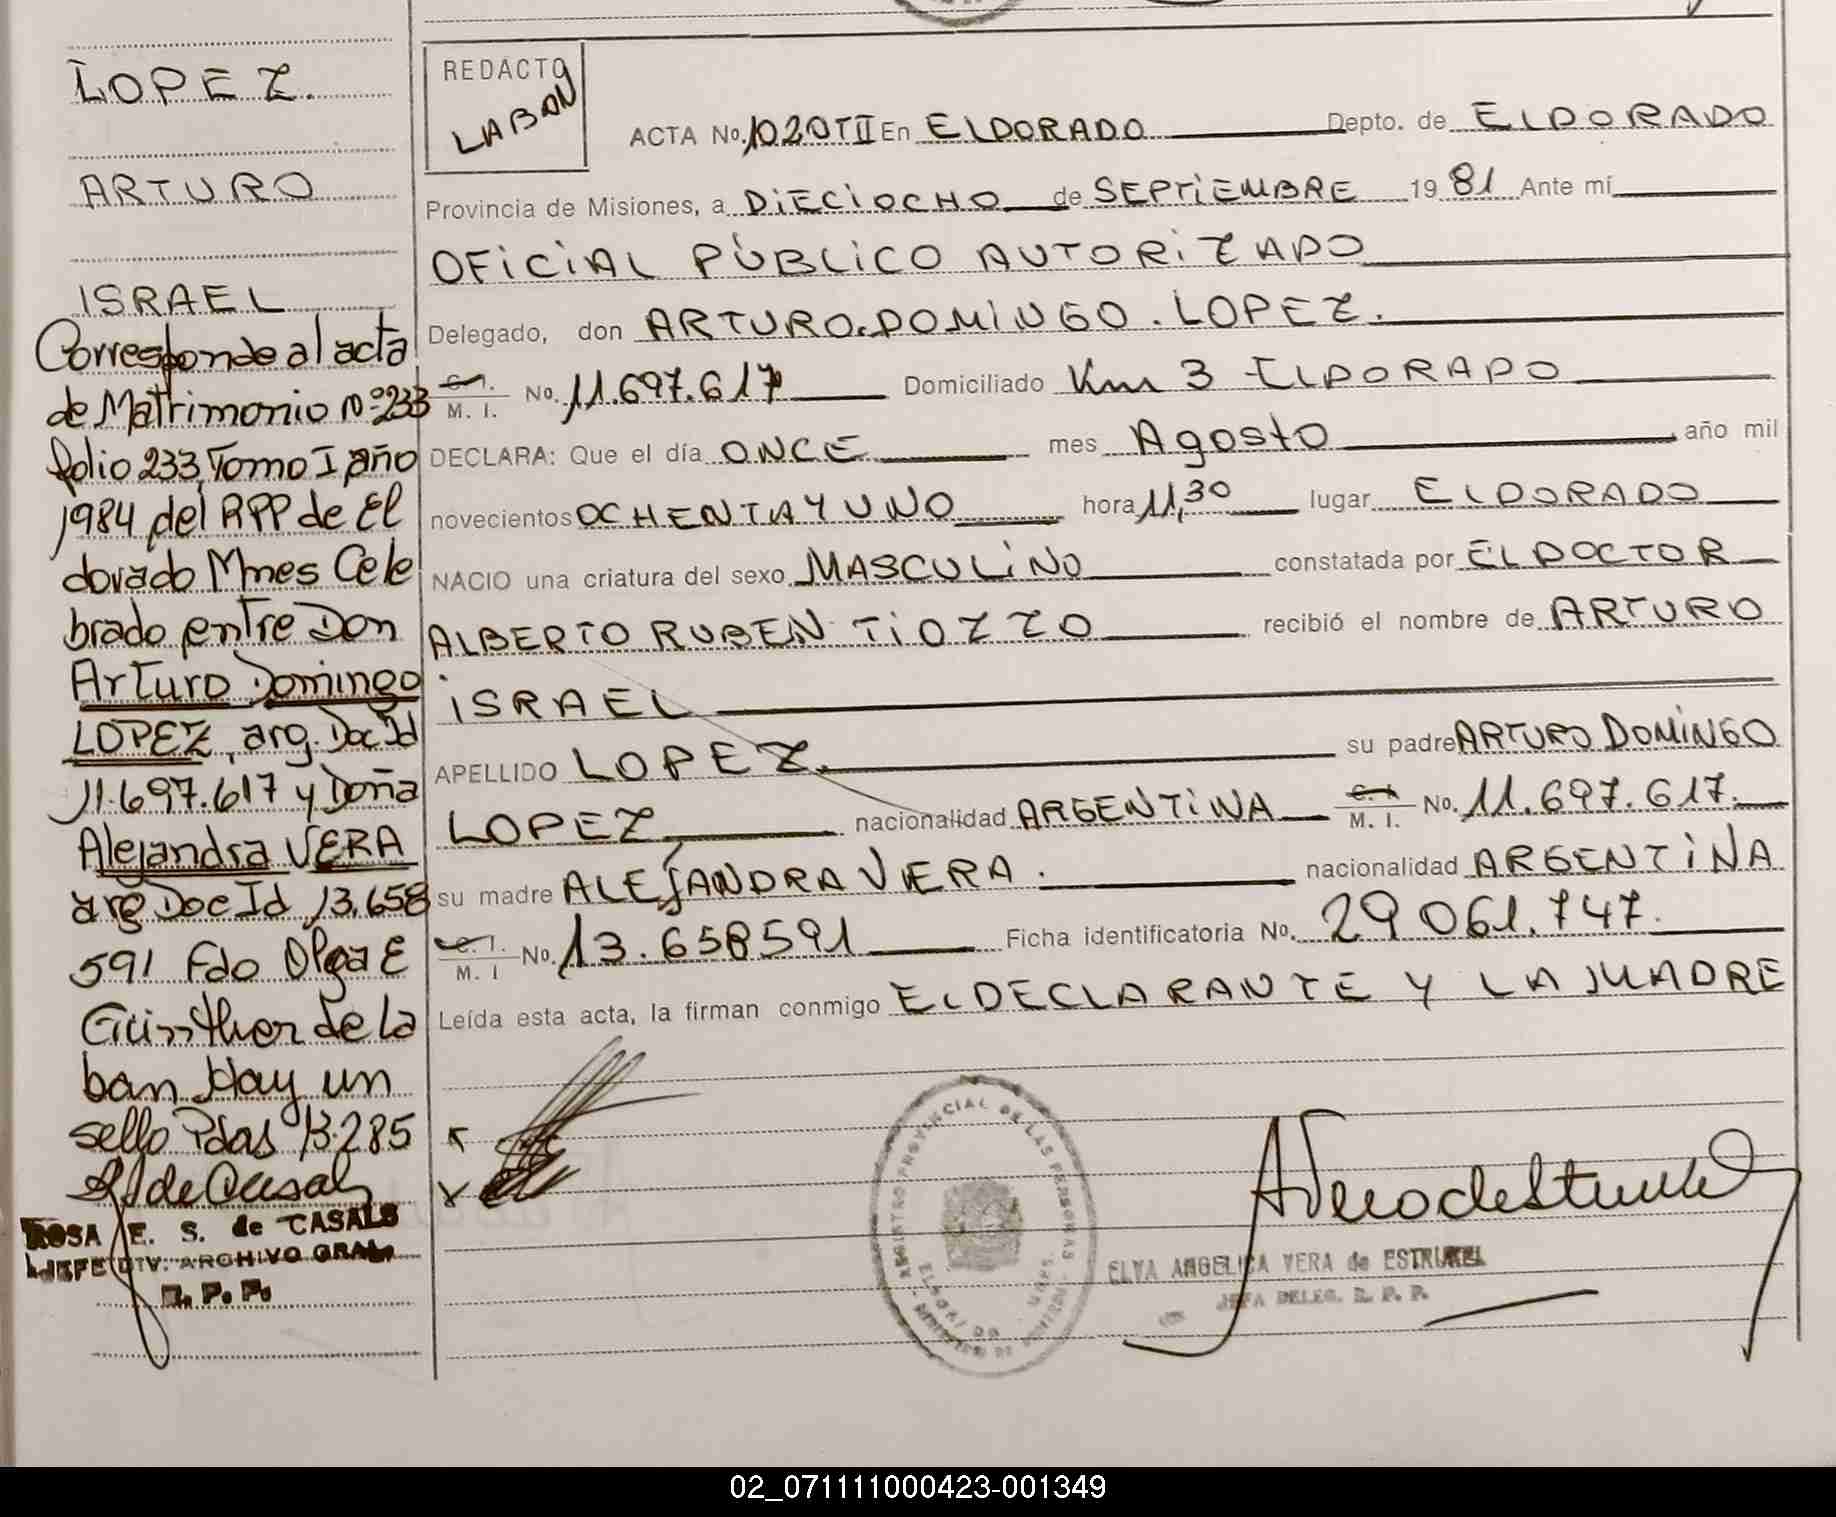 LOPEZ.
ARTURO
ISRAEL
Corresponde al acta
de Matrimonio Nº 233
folio 233, Tomo I año
1984 del RPP de El
dorado Mnes Cele
brado entre Don
Arturo Domingo
LOPEZ, arg. Doc Id
11.697.617 y Doña
Alejandra VERA
arg Doc Id 13.658
591 Fdo Olga E
Günther de La
ban Hay un
sello Pdas 13.285
ROSA E. S. de CASALS
JEFE DIV. ARCHIVO GRAL.
R. P. P.
REDACTO
LABAN
ACTA No. 1020 T II En ELDORADO Depto. de ELDORADO
Provincia de Misiones, a DIECIOCHO de SEPTIEMBRE 1981 Ante mí
OFICIAL PÚBLICO AUTORIZADO
Delegado, don ARTURO. DOMINGO. LOPEZ.
C. I.
M. I. No. 11.697.617 Domiciliado Km 3 ELDORADO
DECLARA: Que el día ONCE mes Agosto año mil
novecientos OCHENTA Y UNO hora 11,30 lugar ELDORADO
NACIO una criatura del sexo MASCULINO constatada por EL DOCTOR
ALBERTO RUBEN TIOZZO recibió el nombre de ARTURO
ISRAEL
APELLIDO LOPEZ. su padre ARTURO DOMINGO
LOPEZ nacionalidad ARGENTINA M. I. No. 11.697.617.
su madre ALEJANDRA VERA. nacionalidad ARGENTINA
C. I.
M. I No. 13.658591 Ficha identificatoria No. 29061.747.
Leída esta acta, la firman conmigo EL DECLARANTE Y LA MADRE
REGISTRO PROVINCIAL DE LAS PERSONAS
ELDORADO
ELVA ANGELICA VERA de ESTRUKEL
JEFA DELEG. R. P. P.
02_071111000423-001349